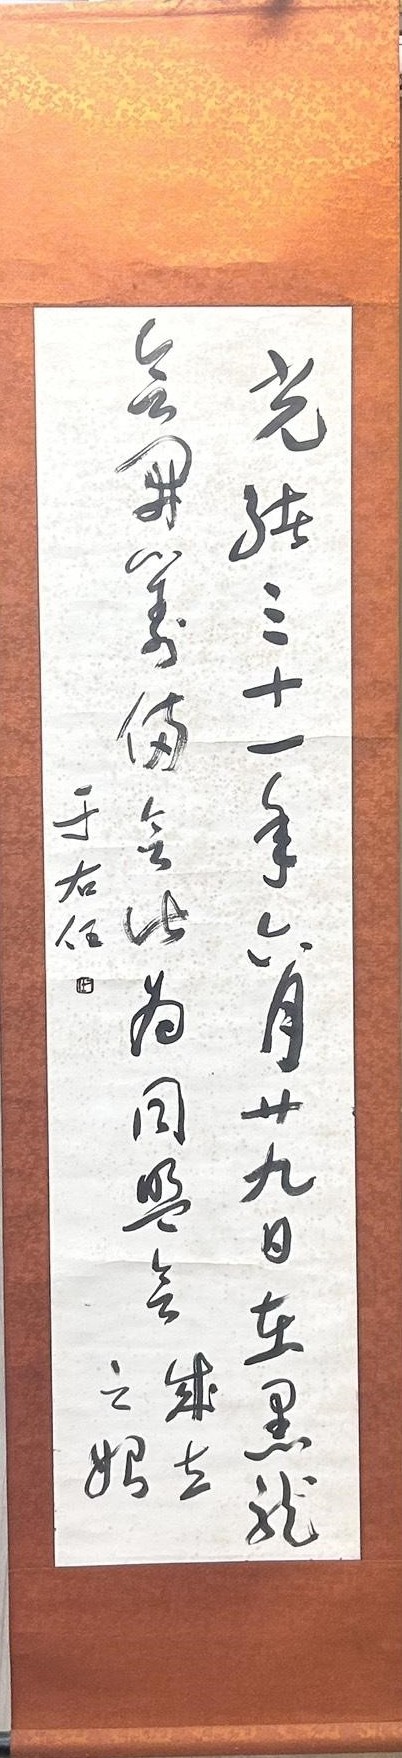 光緒三十一年六月廿九日在黑龍
會開籌備會此為同盟會成立
之始
于右任